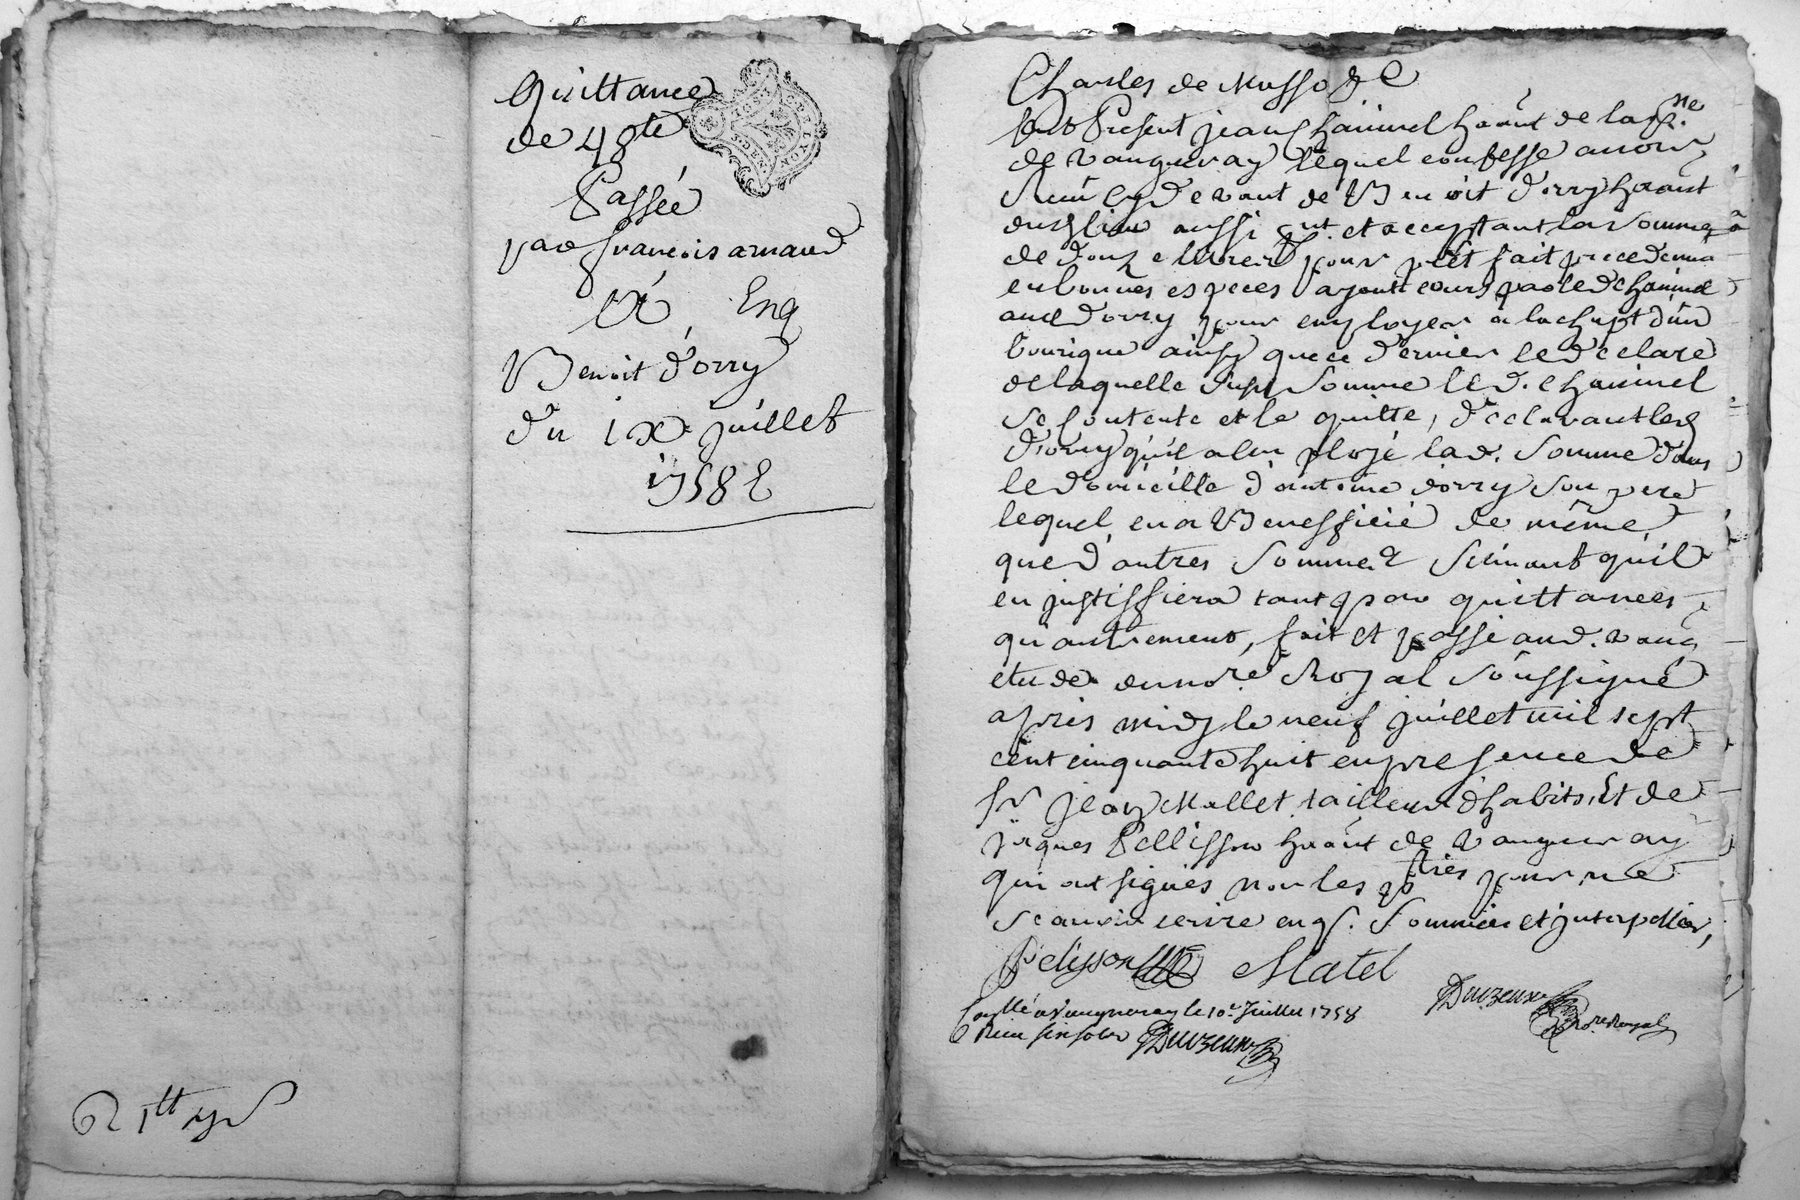 Quittance
de 48 lt
Passée
par françois arnaud
à Enq
Benoit d'orry
du ix juillet
1758
1 lt
Charles de Musso
fut Present jean chaumel haânt de la psse
de vaugneray lequel confesse avoir
Reeû cy devant de Benoit d'orry haânt
dud lieu aussi pnt. et acceptant la somme
de douze livres pour prêt fait precedemt
en bonnes especes ayant cours par led chaumel
aud d'orry pour employer à lachapt d'un
bourique ainsy que ce dernier le declare
de laquelle susd. somme le d. chaumel
se contente et le quitte, declarant led
d'orry qu'il a em ployé lad. somme dans
le domicille d'antoine dorry son pere
lequel en a Benefficié de même
que d'autres sommes suivant qu'il
en justiffiera tant par quittances
qu'autrement, fait et passé aud. vaug.
etude du nore Royal soussigné
apres midy le neuf juillet mil sept
cent cinquante huit en presence de
sr jean Mallet tailleur d'habits, Et de
jaques Pellisson haânt de vaugneray
qui ont signés non les pties pour ne
scavoir ecrire enqs. sommées et interpellées,
Pelisson Matel
Duvzeux nore Royal
Conllé a Vaugneray le 10e Juillet 1758
Reeu six sols Duvzeux